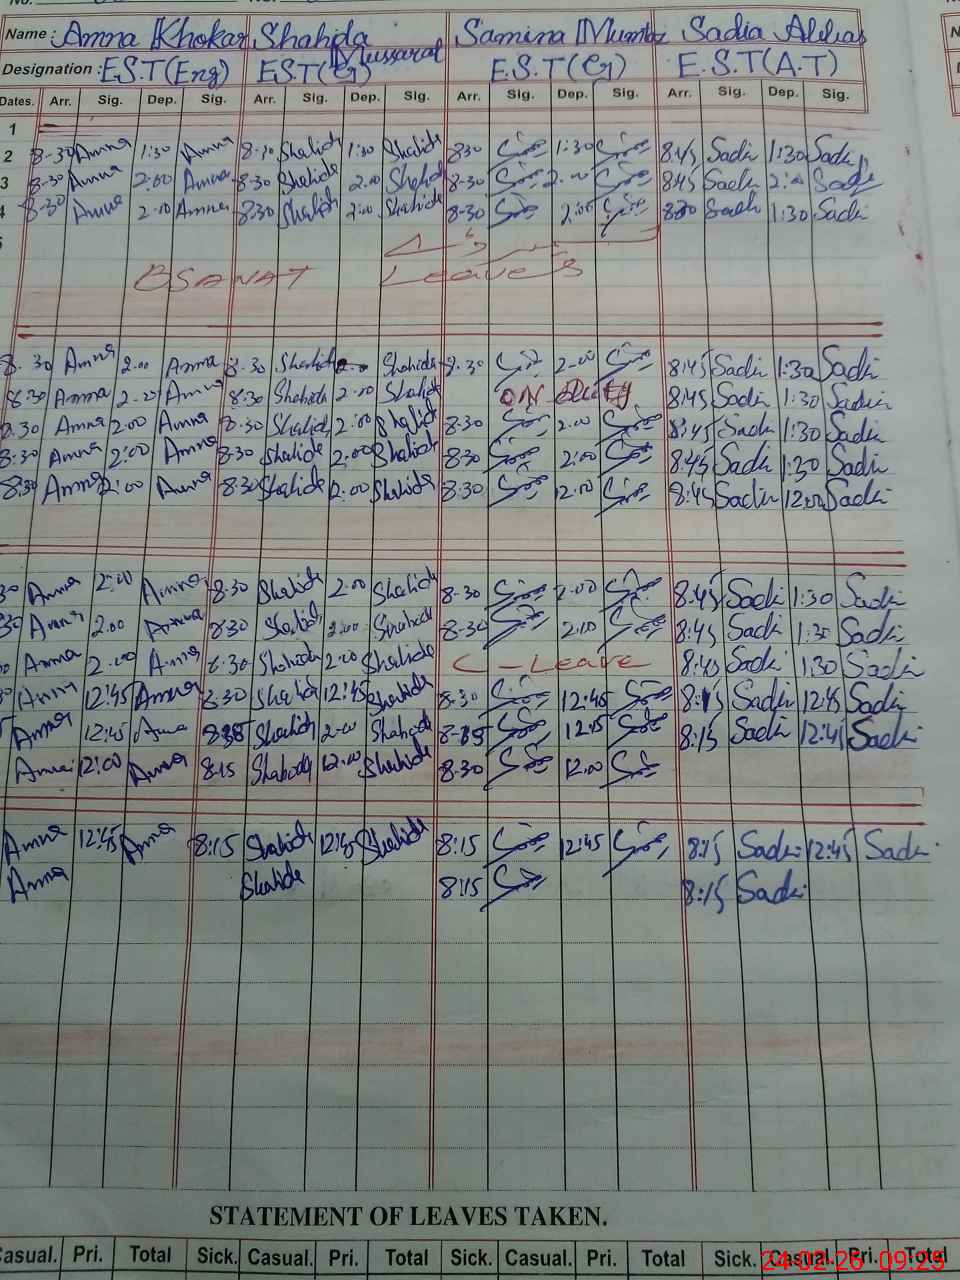 Name : Amna Khokar Shahida Mussarat Samina Mumtaz Sadia Abbas
Designation : E.S.T(Eng) E.S.T(G) E.S.T(G) E.S.T(A.T)
Dates. Arr. Sig. Dep. Sig. Arr. Sig. Dep. Sig. Arr. Sig. Dep. Sig. Arr. Sig. Dep. Sig.
1
2 8-30 Amna 1:30 Amna 8-30 Shahida 1:30 Shahida 830 1:30 8:45 Sadia 1:30 Sadia
3 8-30 Amna 2:00 Amna 8-30 Shahida 2.00 Shahida 8-30 2:00 8:45 Sadia 2:00 Sadia
4 8-30 Amna 2:00 Amna 8:30 Shahida 2:00 Shahida 8-30 2:00 Sadia 1:30 Sadia
BSANAT Leaves
8.30 Amna 2.00 Amna 8-30 Shahida Shahida 8.30 2-00 8:45 Sadia 1:30 Sadia
8:30 Amna 2-00 Amna 8:30 Shahida 2-00 Shahida ON DUTY 8:45 Sadia 1:30 Sadia
8.30 Amna 2:00 Amna 8-30 Shahida 2:00 Shahida 8-30 2.00 8:45 Sadia 1:30 Sadia
8:30 Amna 2:00 Amna 8-30 Shahida 2:00 Shahida 8:30 2:00 8:45 Sadia 1:30 Sadia
8:30 Amna 12:00 Amna 8:30 Shahida 12:00 Shahida 8:30 12:00 8:45 Sadia 12:00 Sadia
30 Amna 2:00 Amna 8-30 Shahida 2:00 Shahida 8-30 2:00 8:45 Sadia 1:30 Sadia
30 Amna 2.00 Amna 8:30 Shahida 2:00 Shahida 8-30 2:00 8:45 Sadia 1:30 Sadia
Amna 2:00 Amna 8:30 Shahida 2:00 Shahida C-Leave 8:45 Sadia 1:30 Sadia
Amna 12:45 Amna 8:30 Shahida 12:45 Shahida 8-30 12:45 8:15 Sadia 12:45 Sadia
Amna 12:45 Amna Shahida 2-00 Shahida 12:45 8:15 Sadia 12:45 Sadia
Amna 12:00 Amna 8:15 Shahida 12:00 Shahida 8-30 12.00
Amna 12:45 Amna 8:15 Shahida 12:45 Shahida 8:15 12:45 8:15 Sadia 12:45 Sadia
Amna Shahida 8:15 8:15 Sadia
STATEMENT OF LEAVES TAKEN.
Casual. Pri. Total Sick. Casual. Pri. Total Sick. Casual. Pri. Total Sick. Casual. Pri. Total
24-02-26 09:25